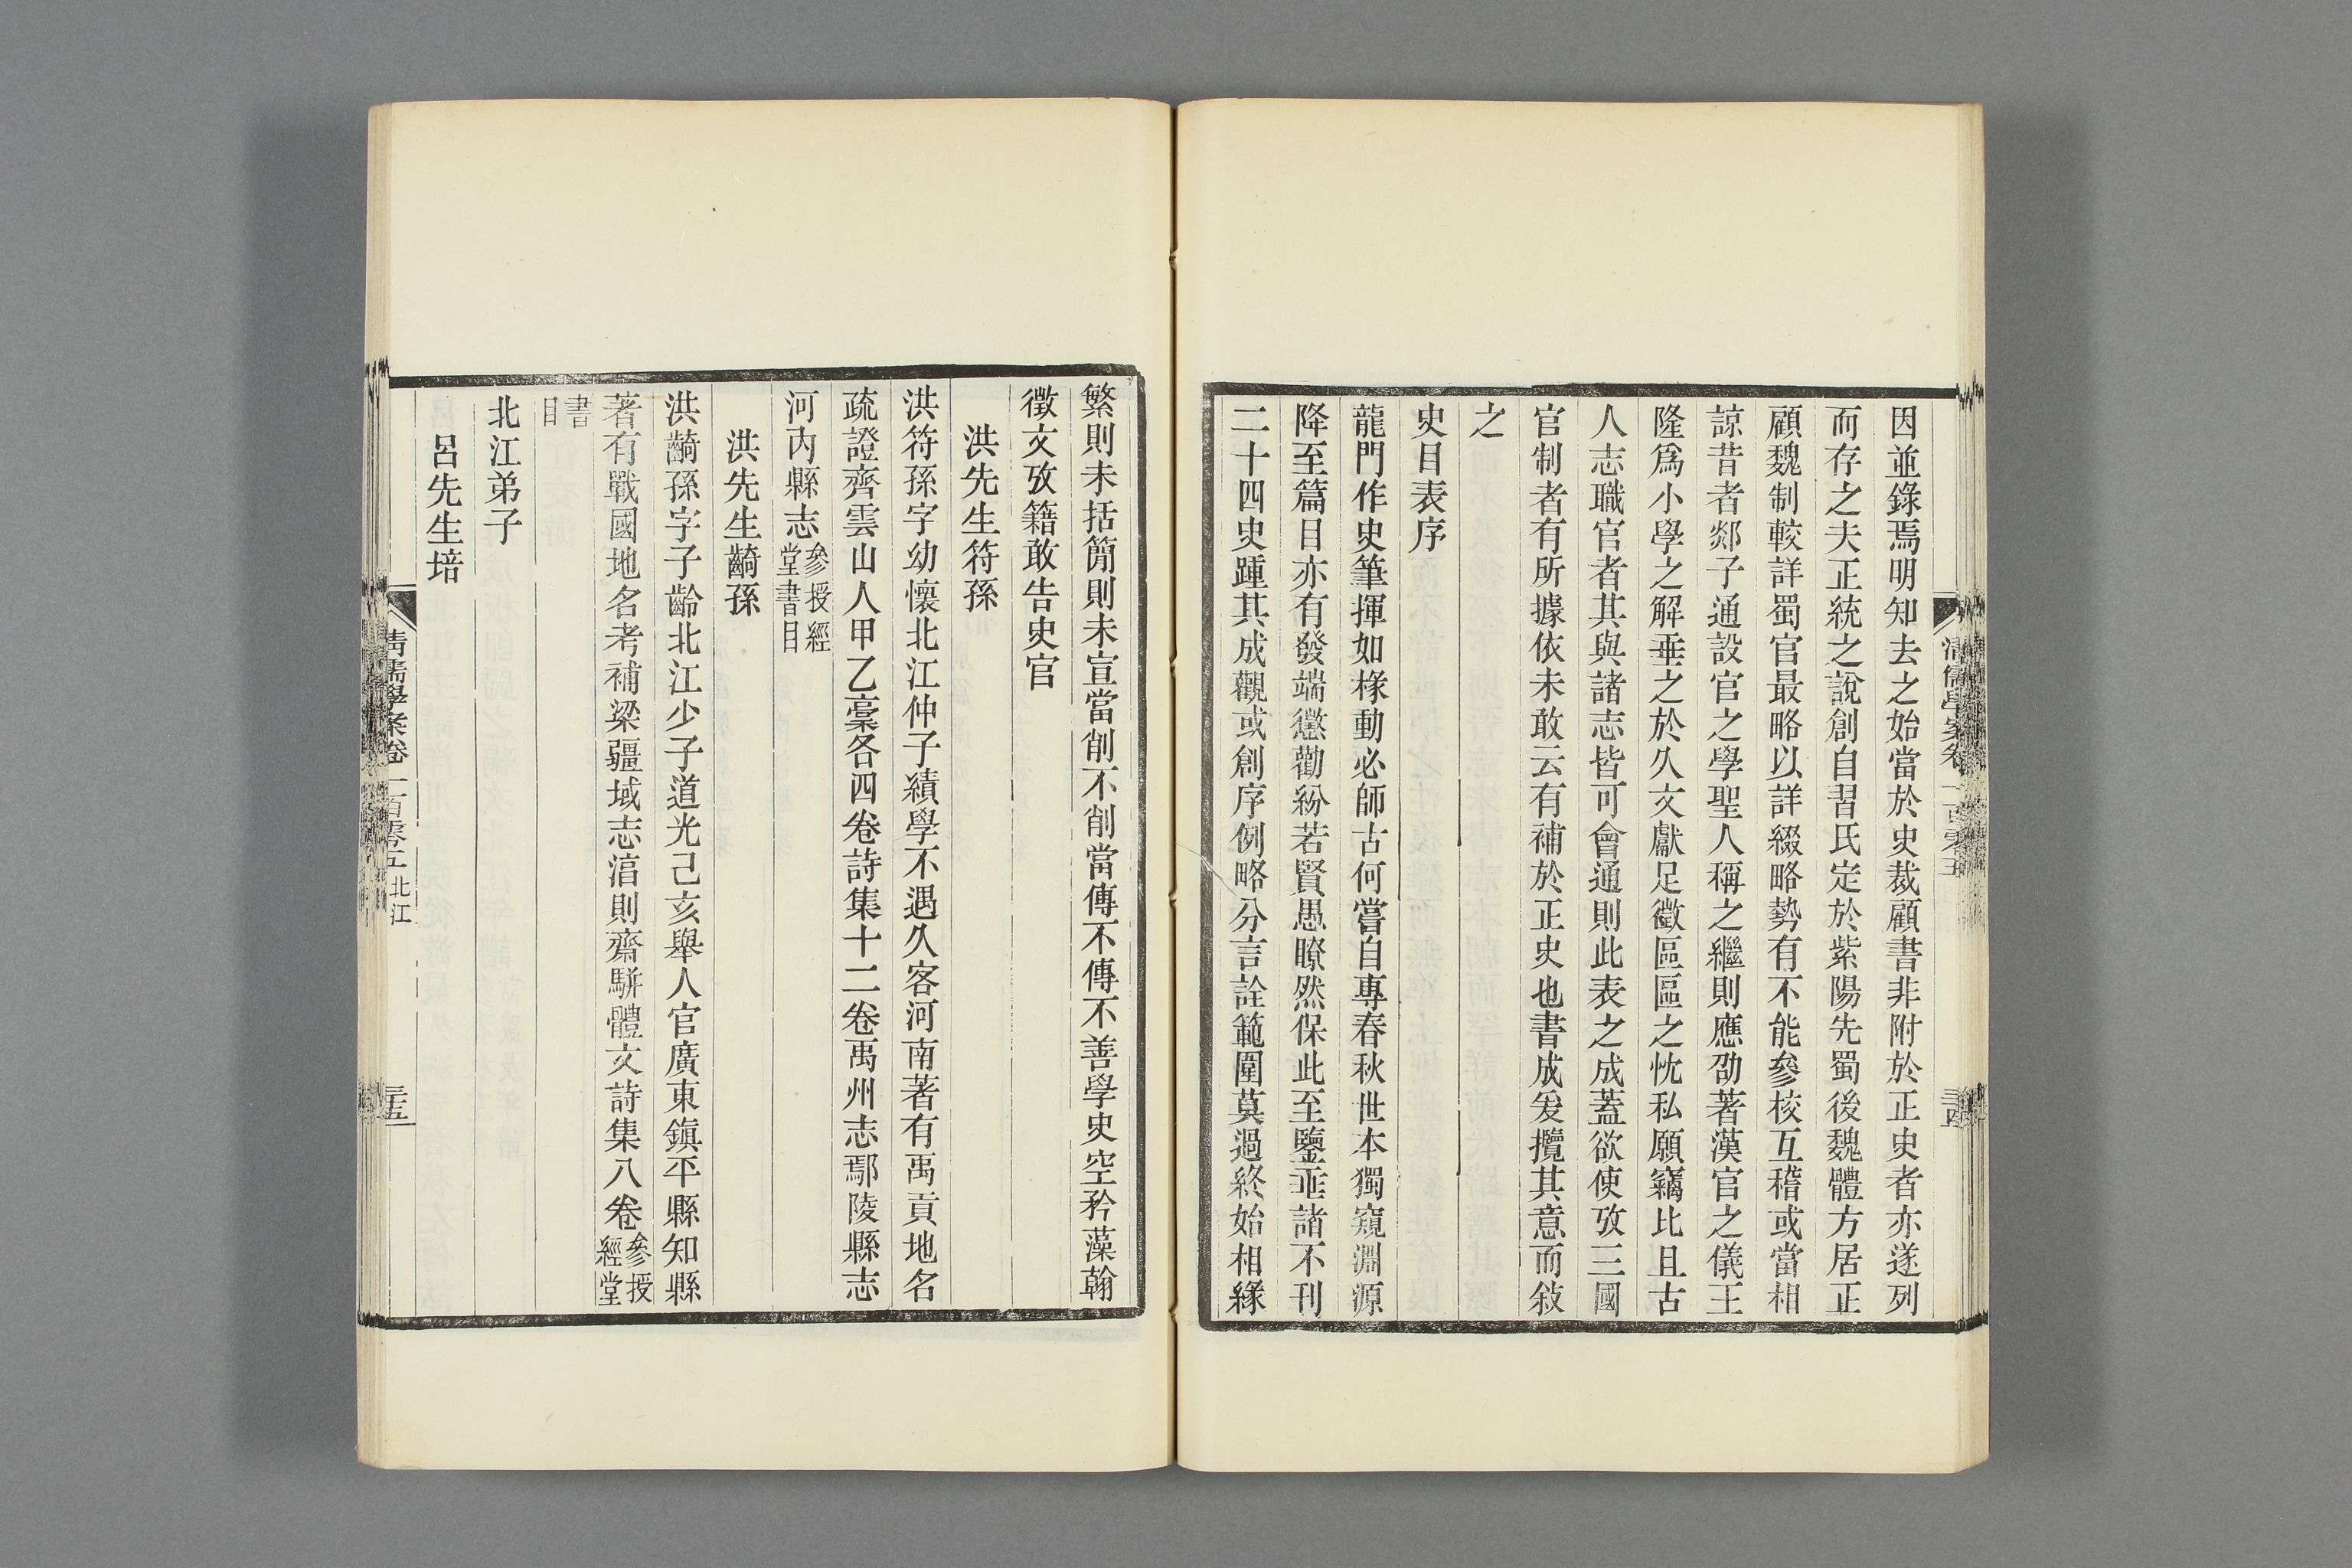 因並錄焉明知去之始當於史裁顧書非附於正史者亦遂列
而存之夫正統之說創自習氏定於紫陽先蜀後魏體方居正
顧魏制較詳蜀官最略以詳綴略勢有不能參校互稽或當相
諒昔者郯子通設官之學聖人稱之繼則應劭著漢官之儀王
隆爲小學之解垂之於久文獻足徵區區之忱私願竊比且古
人志職官者其與諸志皆可會通則此表之成蓋欲使攷三國
官制者有所據依未敢云有補於正史也書成爰攬其意而敘
之
史目表序
龍門作史筆揮如椽動必師古何嘗自專春秋世本獨窺淵源
降至篇目亦有發端懲勸紛若賢愚瞭然保此至鑒垂諸不刊
二十四史踵其成觀或創序例略分言詮範圍莫過終始相緣
清儒學案卷一百零五
三十四
繁則未括簡則未宣當削不削當傳不傳不善學史空矜藻翰
徵文攷籍敢告史官
洪先生符孫
洪符孫字幼懷北江仲子績學不遇久客河南著有禹貢地名
疏證齊雲山人甲乙稾各四卷詩集十二卷禹州志鄢陵縣志
河內縣志參授經堂書目
洪先生齮孫
洪齮孫字子齡北江少子道光己亥舉人官廣東鎮平縣知縣
著有戰國地名考補梁疆域志湻則齋駢體文詩集八卷參授經堂
書目
北江弟子
呂先生培
清儒學案卷一百零五 北江
三十五